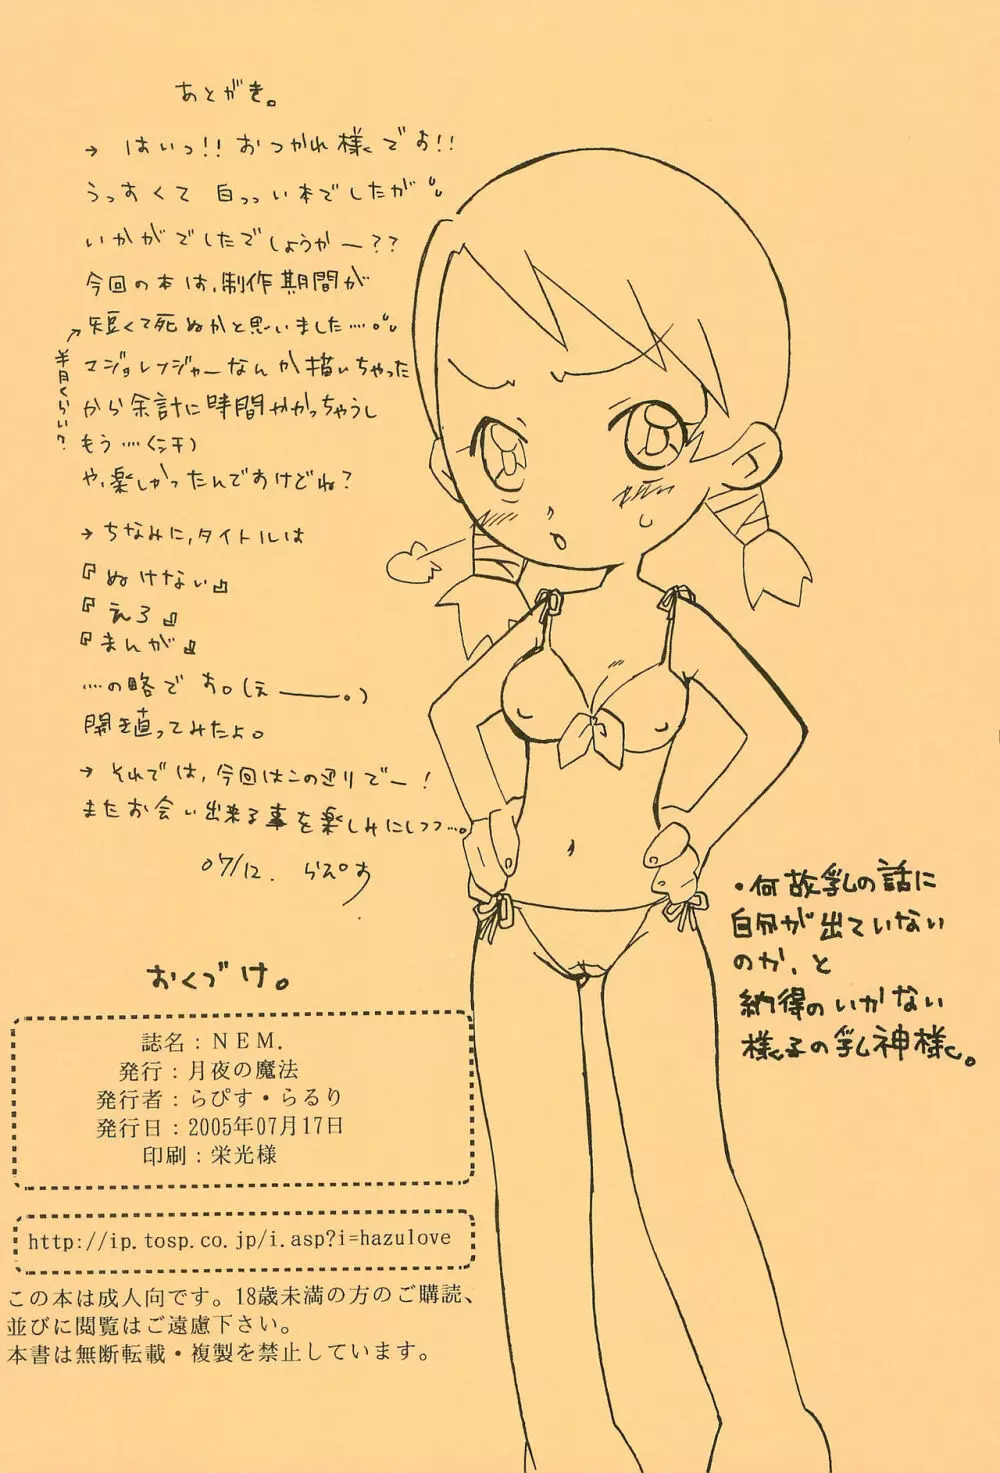 あとがき。
→ はいっ!! おつかれ様でお!!
うっすくて 白っっい本でしたが
いかがでしたでしょうかー??
今回の本は、制作期間が
短くて死ぬかと思いました…。
半月くらい?
マジョレンジャーなんか描いちゃった
から余計に時間かかっちゃうし
もう…
や、楽しかったんですけどね?
→ ちなみに、タイトルは
『ぬけない』
『えろ』
『まんが』
…の略です。(えー。)
開き直ってみたよ。
→ それでは、今回はこの辺りでー!
またお会い出来る事を楽しみにしつつ…。
07/12. らぴす
・何故乳の話に
自分が出ていない
のか、と
納得のいかない
様子の乳神様。
おくづけ。
誌名：NEM.
発行：月夜の魔法
発行者：らぴす・らるり
発行日：2005年07月17日
印刷：栄光様
http://ip.tosp.co.jp/i.asp?i=hazulove
この本は成人向です。18歳未満の方のご購読、
並びに閲覧はご遠慮下さい。
本書は無断転載・複製を禁止しています。